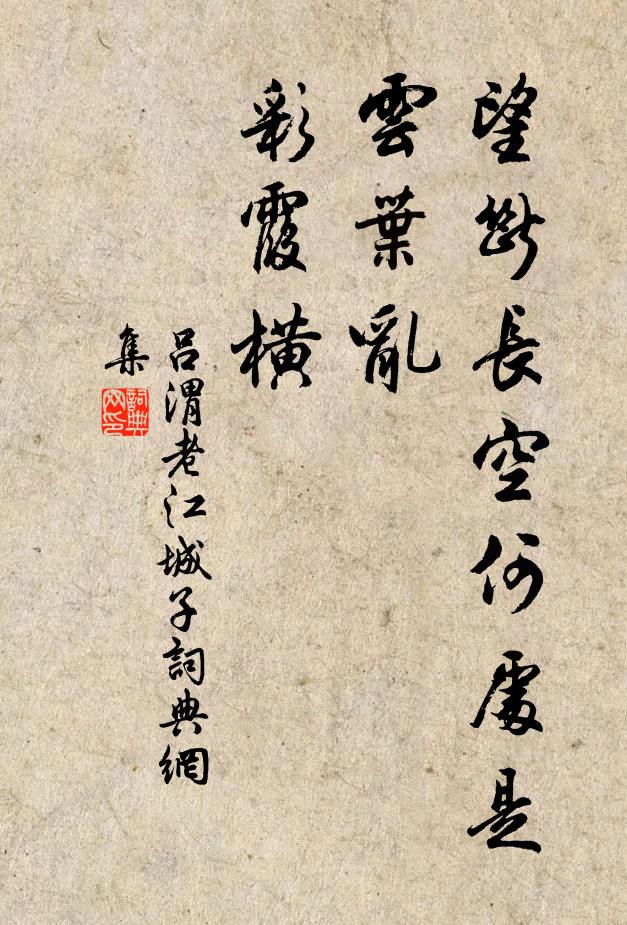 望斷長空何處是
雲葉亂
彩霞橫
呂渭老江城子詞典網
集
詞典
网印